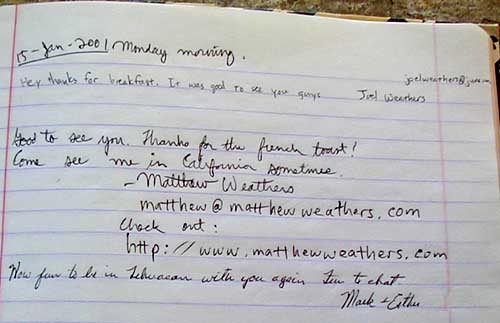 15-Jan-2001 Monday morning.
joelweathers@juno.com
Hey thanks for breakfast. It was good to see you guys Joel Weathers
Good to see you. Thanks for the french toast!
Come see me in California sometime.
- Matthew Weathers
matthew@matthewweathers.com
Check out:
http://www.matthewweathers.com
How fun to be in Tehuacan with you again Fun to chat
Mark & Esther